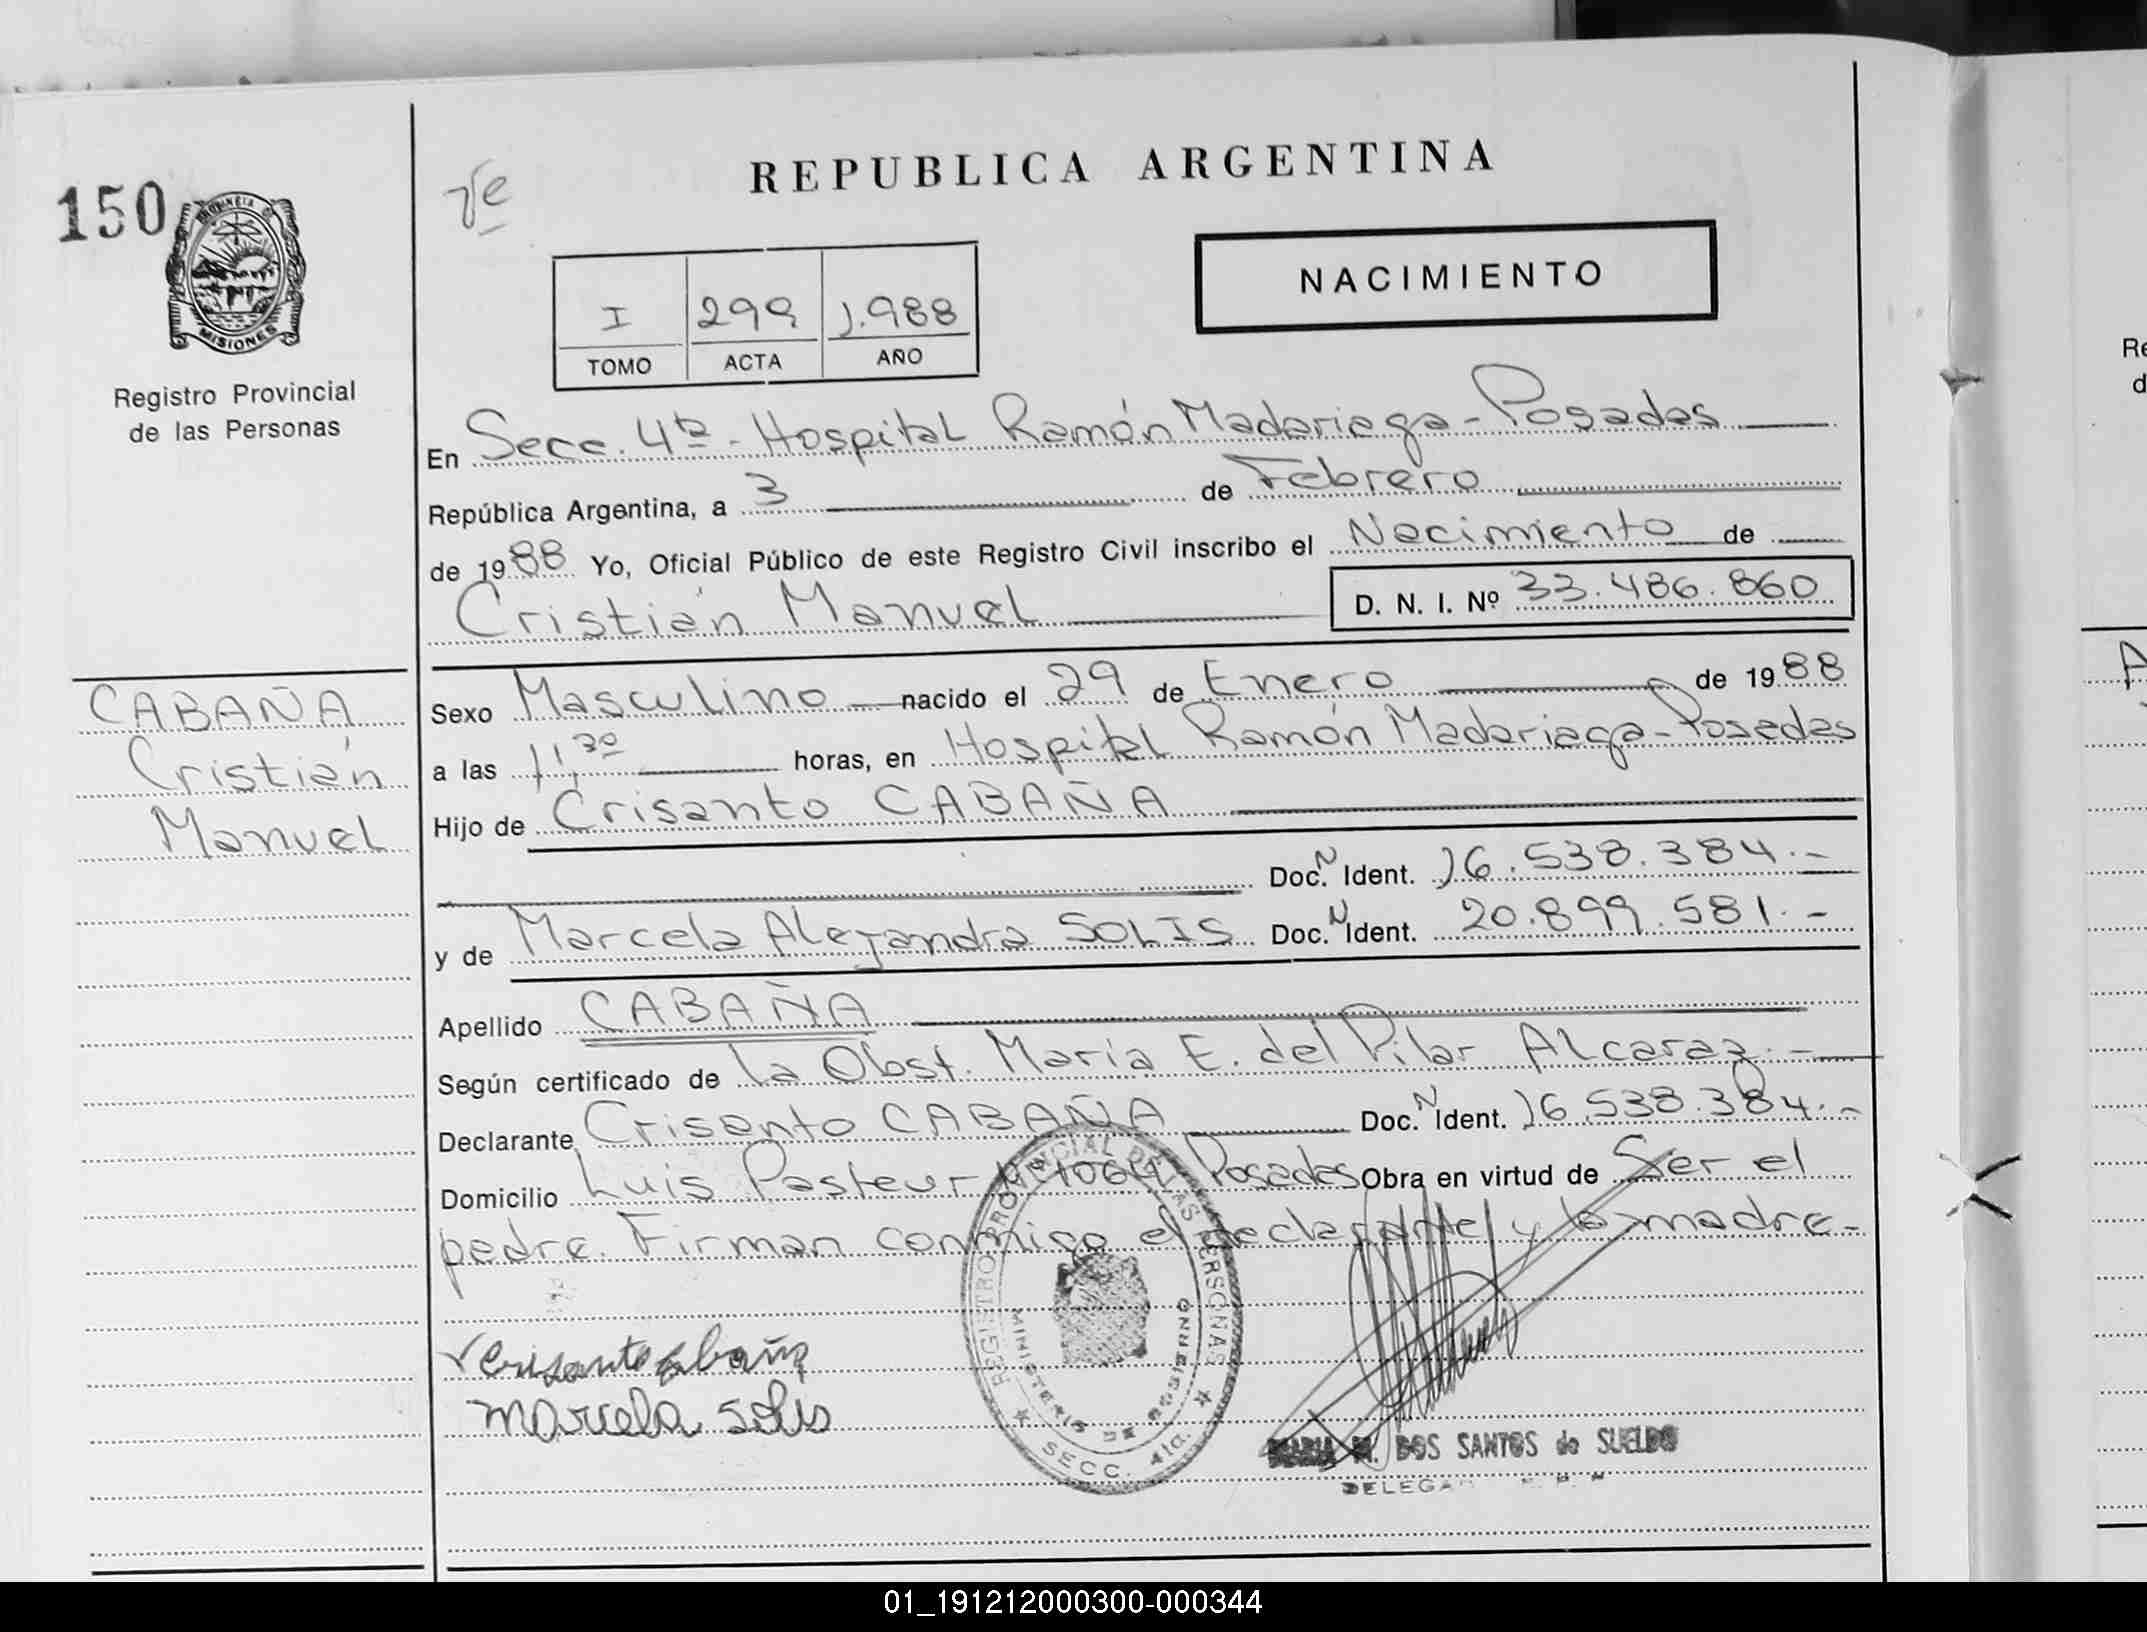 150
PROVINCIA DE
MISIONES
Registro Provincial
de las Personas
CABAÑA
Cristián
Manuel
REPUBLICA ARGENTINA
NACIMIENTO
I 299 1.988
TOMO ACTA AÑO
En Secc. 4ta - Hospital Ramón Madariaga - Posadas
República Argentina, a 3 de Febrero
de 1988 Yo, Oficial Público de este Registro Civil inscribo el Nacimiento de
Cristián Manuel D. N. I. Nº 33.486.860
Sexo Masculino nacido el 29 de Enero de 1988
a las 11,30 horas, en Hospital Ramón Madariaga - Posadas
Hijo de Crisanto CABAÑA
Doc. N Ident. 16.538.384.-
y de Marcela Alejandra SOLIS Doc. N Ident. 20.899.581.-
Apellido CABAÑA
Según certificado de la Obst. María E. del Pilar Alcaraz.-
Declarante Crisanto CABAÑA Doc. N Ident. 16.538.384.-
Domicilio Luis Pasteur Nº 1064 Posadas Obra en virtud de Ser el
padre. Firman conmigo el declarante y la madre.-
Crisanto Cabaña
Marcela Solis
REGISTRO PROVINCIAL DE LAS PERSONAS
MINISTERIO DE GOBIERNO
SECC. 4ta.
MARIA M. DOS SANTOS de SUELDO
01_191212000300-000344